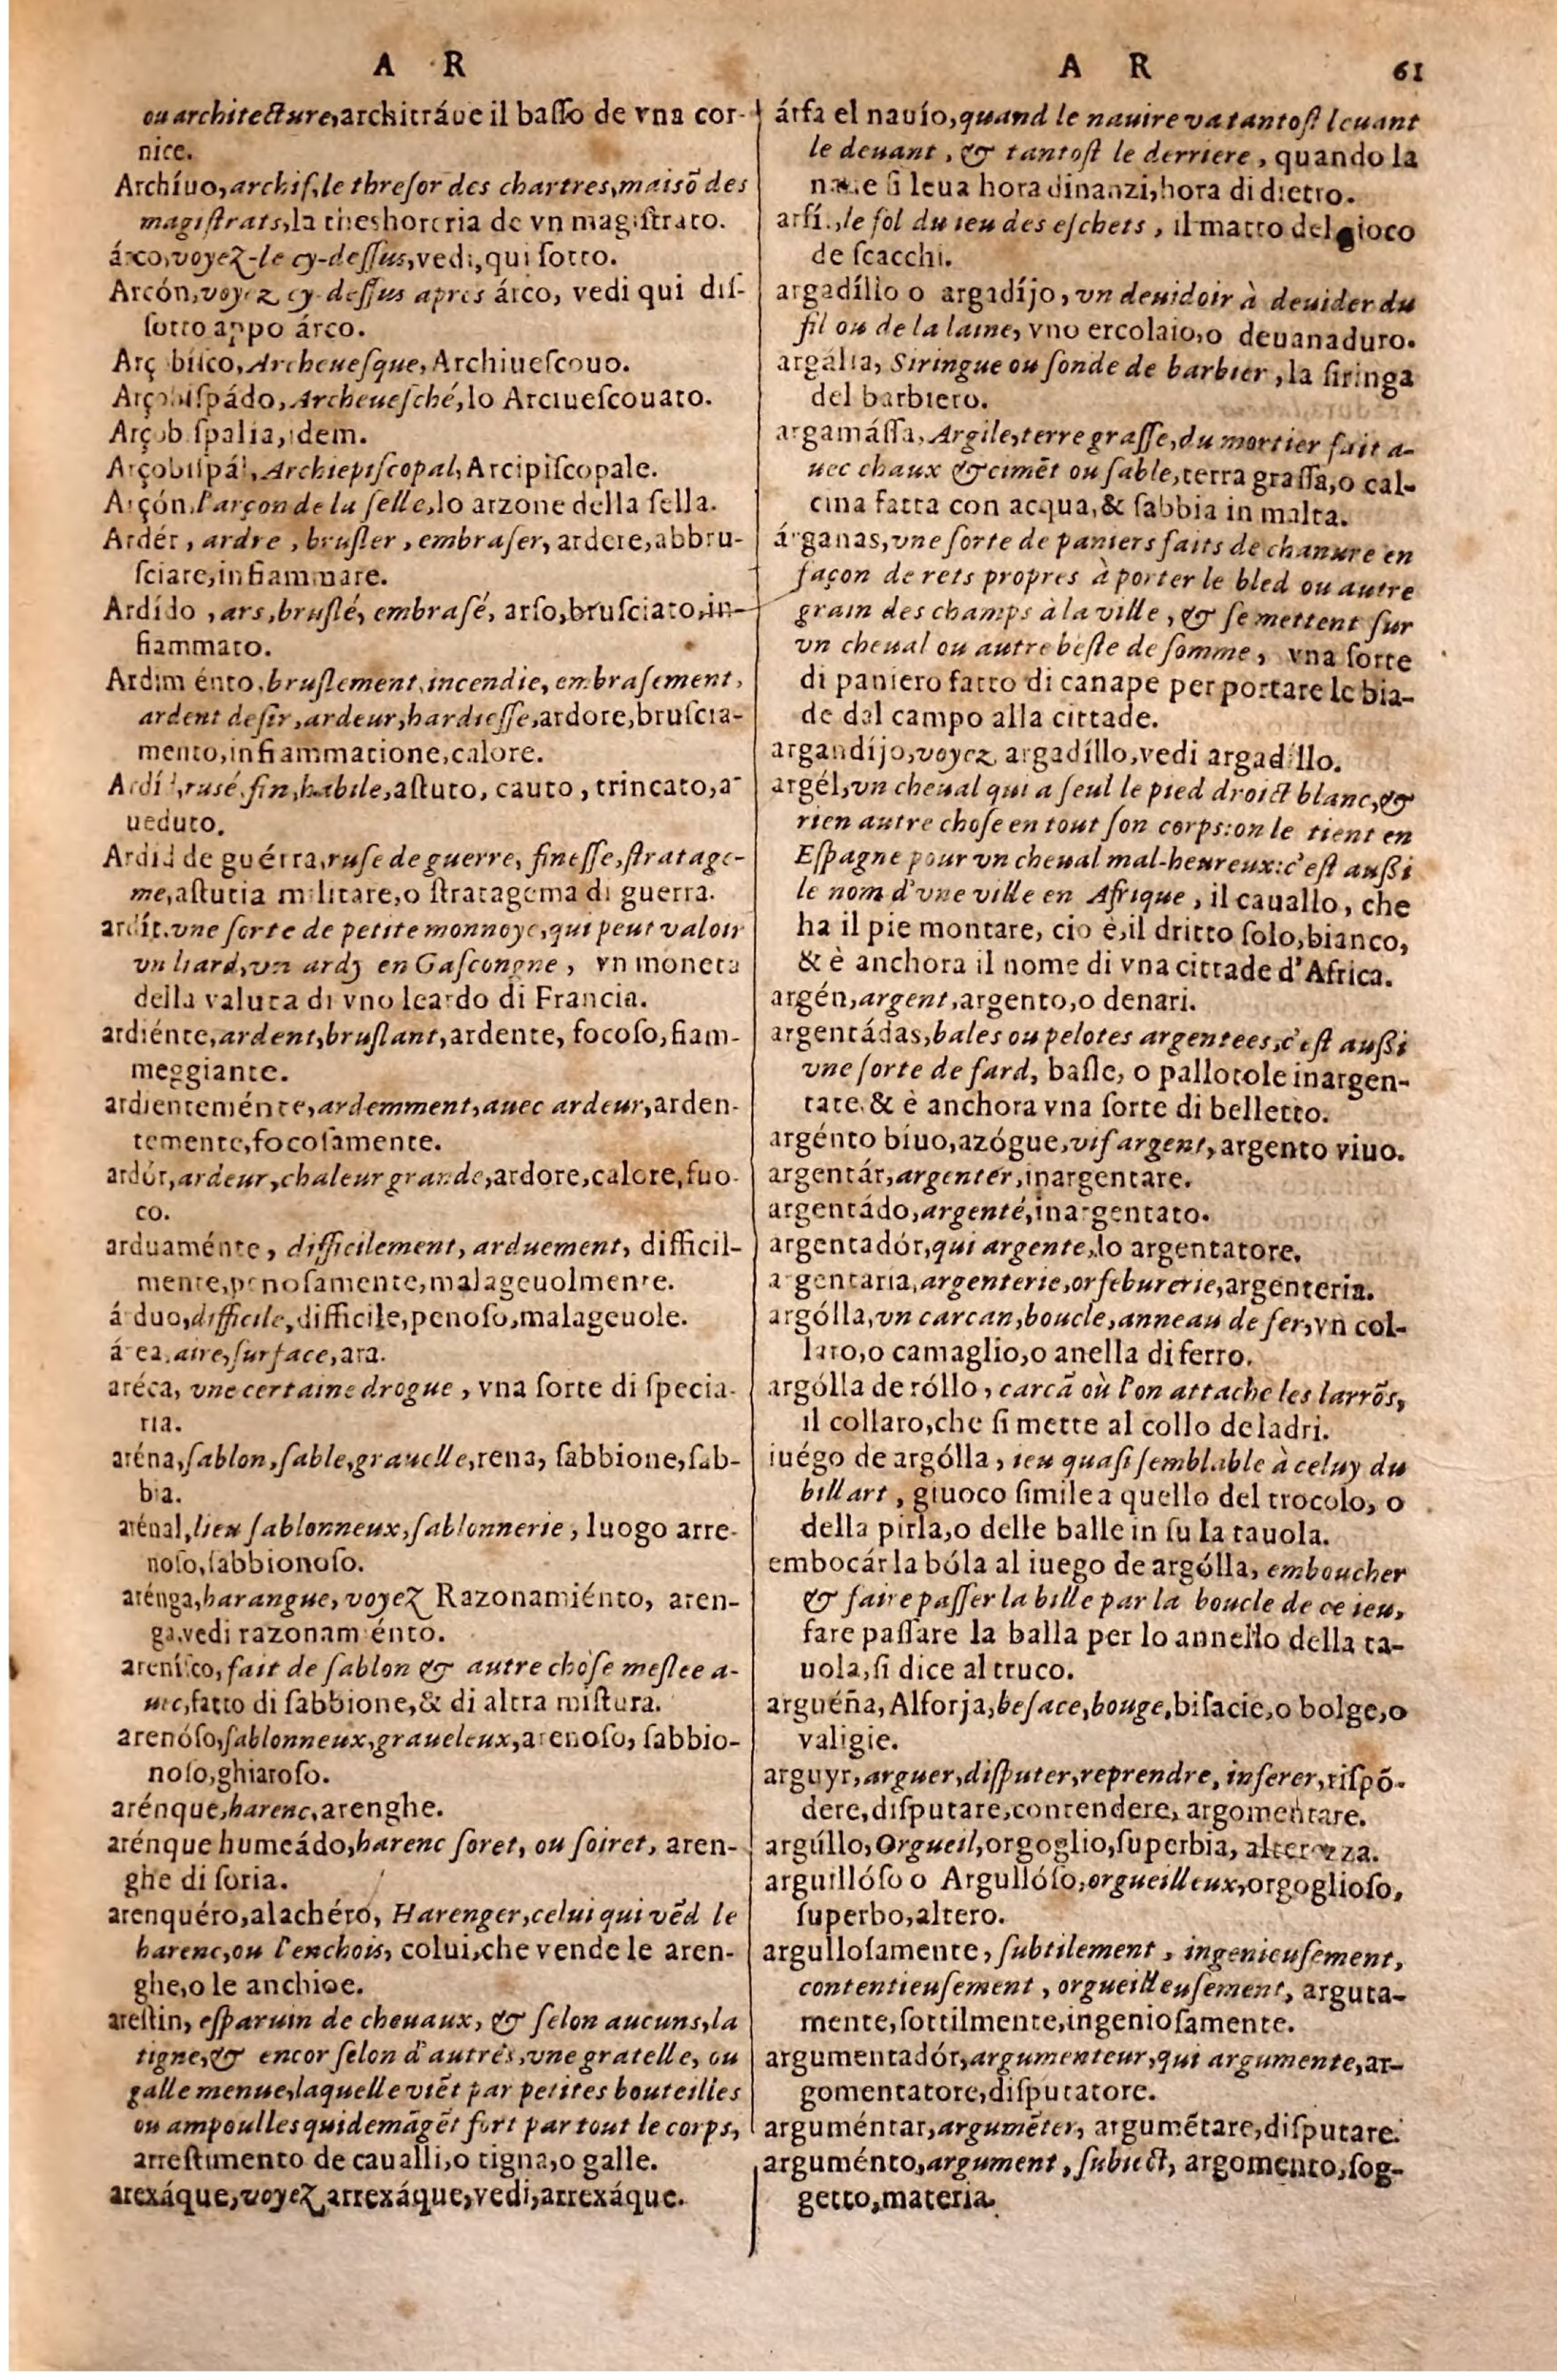 A R
ou architecture, architráue il baſſo de vna cor-
nice.
Archíuo, archiſ, le threſor des chartres, maisõ des
magiſtrats, la theshoreria de vn magiſtrato.
árco, voyez-le cy-deſſus, vedi, qui ſotto.
Arcón, voyez cy-deſſus apres árco, vedi qui diſ-
ſotto appo árco.
Archeueſque, Archiueſcouo.
Archeueſché, lo Arciueſcouato.
idem.
Arçobiſpál, Archiepiſcopal, Arcipiſcopale.
Arçón, l'arçon de la ſelle, lo arzone della ſella.
Ardér, ardre, bruſler, embraſer, ardere, abbru-
ſciare, infiammare.
Ardído, ars, bruſlé, embraſé, arſo, bruſciato, in-
fiammato.
Ardimiénto, bruſlement, incendie, embraſement,
ardent deſir, ardeur, hardieſſe, ardore, bruſcia-
mento, infiammatione, calore.
ruſé, fin, habile, aſtuto, cauto, trincato, a-
ueduto.
Ardid de guérra, ruſe de guerre, fineſſe, ſtratage-
me, aſtutia militare, o ſtratagema di guerra.
ardít, vne ſorte de petite monnoye, qui peut valoir
vn liard, vn ardy en Gaſcongne, vn moneta
della valuta di vno leardo di Francia.
ardiénte, ardent, bruſlant, ardente, focoſo, fiam-
meggiante.
ardienteménte, ardemment, auec ardeur, arden-
temente, focoſamente.
ardór, ardeur, chaleur grande, ardore, calore, fuo-
co.
arduaménte, difficilement, arduement, difficil-
mente, penoſamente, malageuolmente.
árduo, difficile, difficile, penoſo, malageuole.
área, aire, ſurface, ara.
aréca, vne certaine drogue, vna ſorte di ſpecia-
ria.
aréna, ſablon, ſable, grauelle, rena, ſabbione, ſab-
bia.
arénal, lieu ſablonneux, ſablonnerie, luogo arre-
noſo, ſabbionoſo.
arénga, harangue, voyez Razonamiénto, aren-
ga, vedi razonamiénto.
areníſco, fait de ſablon & autre choſe meſlee a-
uec, fatto di ſabbione, & di altra miſtura.
arenóſo, ſablonneux, graueleux, arenoſo, ſabbio-
noſo, ghiaroſo.
arénque, harenc, arenghe.
arénque humeádo, harenc ſoret, ou ſoiret, aren-
ghe di ſoria.
arenquéro, alachéro, Harenger, celui qui vẽd le
harenc, ou l'enchois, colui, che vende le aren-
ghe, o le anchioe.
areſtin, eſparuin de cheuaux, & ſelon aucuns, la
tigne, & encor ſelon d'autres, vne gratelle, ou
galle menue, laquelle viẽt par petites bouteilles
ou ampoulles qui demãgẽt fort par tout le corps,
arreſtimento de caualli, o tigna, o galle.
arexáque, voyez arrexáque, vedi, arrexáque.
A R 61
árfa el nauío, quand le nauire va tantoſt leuant
le deuant, & tantoſt le derriere, quando la
naue ſi leua hora dinanzi, hora di dietro.
le fol du ieu des eſchets, il matto del gioco
de ſcacchi.
argadíllo o argadíjo, vn deuidoir à deuider du
fil ou de la laine, vno ercolaio, o deuanaduro.
argália, Siringue ou ſonde de barbier, la ſiringa
del barbiero.
argamáſſa, Argile, terre graſſe, du mortier fait a-
uec chaux & cimẽt ou ſable, terra graſſa, o cal-
cina fatta con acqua, & ſabbia in malta.
árganas, vne ſorte de paniers faits de chanure en
façon de rets propres à porter le bled ou autre
grain des champs à la ville, & ſe mettent ſur
vn cheual ou autre beſte de ſomme, vna ſorte
di paniero fatto di canape per portare le bia-
de dal campo alla cittade.
argandíjo, voyez argadíllo, vedi argadíllo.
argél, vn cheual qui a ſeul le pied droict blanc, &
rien autre choſe en tout ſon corps: on le tient en
Eſpagne pour vn cheual mal-heureux: c'eſt auſſi
le nom d'vne ville en Afrique, il cauallo, che
ha il pie montare, cio è, il dritto ſolo, bianco,
& è anchora il nome di vna cittade d'Africa.
argén, argent, argento, o denari.
argentádas, bales ou pelotes argentees, c'eſt auſſi
vne ſorte de fard, baſle, o pallotole inargen-
tate, & è anchora vna ſorte di belletto.
argénto bíuo, azógue, vif argent, argento viuo.
argentár, argentér, inargentare.
argentádo, argenté, inargentato.
argentadór, qui argente, lo argentatore.
argentaria, argenterie, orfeburerie, argenteria.
argólla, vn carcan, boucle, anneau de fer, vn col-
laro, o camaglio, o anella di ferro.
argólla de róllo, carcã où l'on attache les larrõs,
il collaro, che ſi mette al collo de ladri.
iuégo de argólla, ieu quaſi ſemblable à celuy du
billart, giuoco ſimile a quello del trocolo, o
della pirla, o delle balle in ſu la tauola.
embocár la bóla al iuego de argólla, emboucher
& faire paſſer la bille par la boucle de ce ieu,
fare paſſare la balla per lo annello della ta-
uola, ſi dice al truco.
arguéña, Alforja, beſace, bouge, biſacie, o bolge, o
valigie.
arguyr, arguer, diſputer, reprendre, inferer, riſpõ-
dere, diſputare, contendere, argomentare.
argúllo, Orgueil, orgoglio, ſuperbia, alterezza.
arguillóſo o Argullóſo, orgueilleux, orgoglioſo,
ſuperbo, altero.
argulloſamente, ſubtilement, ingenieuſement,
contentieuſement, orgueilleuſement, arguta-
mente, ſottilmente, ingenioſamente.
argumentadór, argumenteur, qui argumente, ar-
gomentatore, diſputatore.
arguméntar, argumẽter, argumẽtare, diſputare.
arguménto, argument, ſubiect, argomento, ſog-
getto, materia.